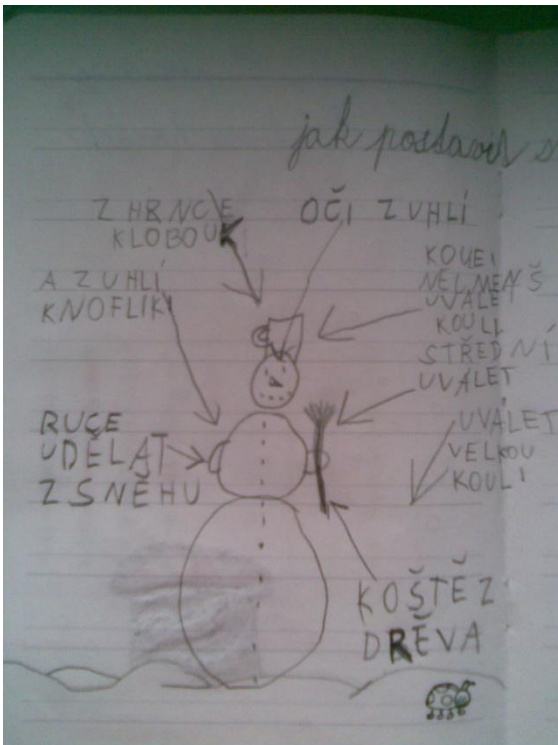 jak postavit s
Z HRNCE
KLOBOUK
OČI Z UHLÍ
A Z UHLÍ
KNOFLIKI
NEJMENŠ
UVALE
KOULI
STŘEDNÍ
UVÁLET
UVÁLET
VELKOU
KOULI
RUCE
UDĚLAT
Z SNĚHU
KOŠTĚ Z
DRĚVA